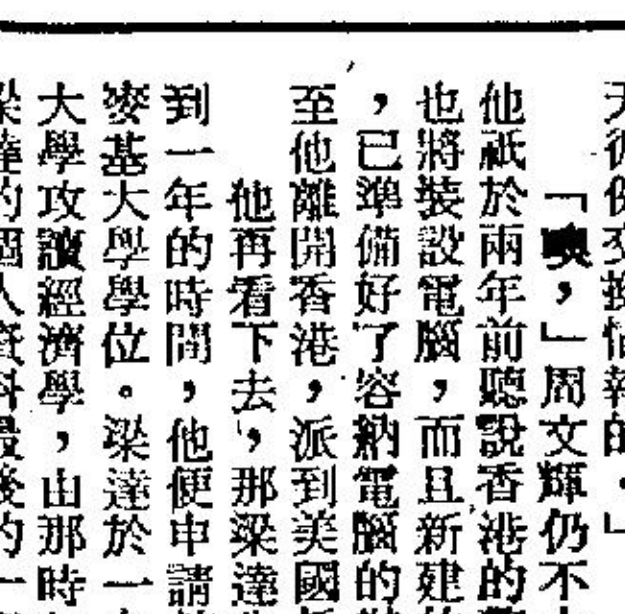 天後便交換情報的。」
「噢，」周文輝仍不
他祇於兩年前聽說香港的
也將裝設電腦，而且新建
，已準備好了容納電腦的
至他離開香港，派到美國
他再看下去，那梁達
到一年的時間，他便申請
麥基大學學位。梁達於一
大學攻讀經濟學，由那時
梁達的個人資料最後的一